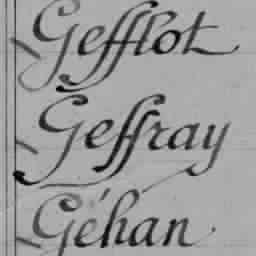 Gefflot
Geffray
Géhan